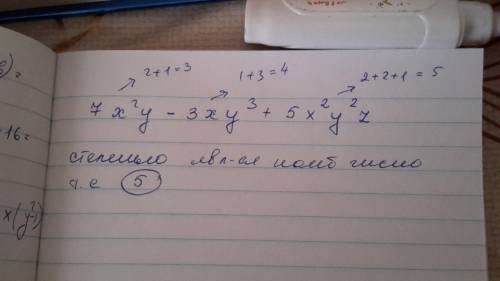 2+1=3 1+3=4 2+2+1=5
7x²y - 3xy³ + 5x²y²z
степенью явл-ся наиб число
т.е 5
16=
x(y²